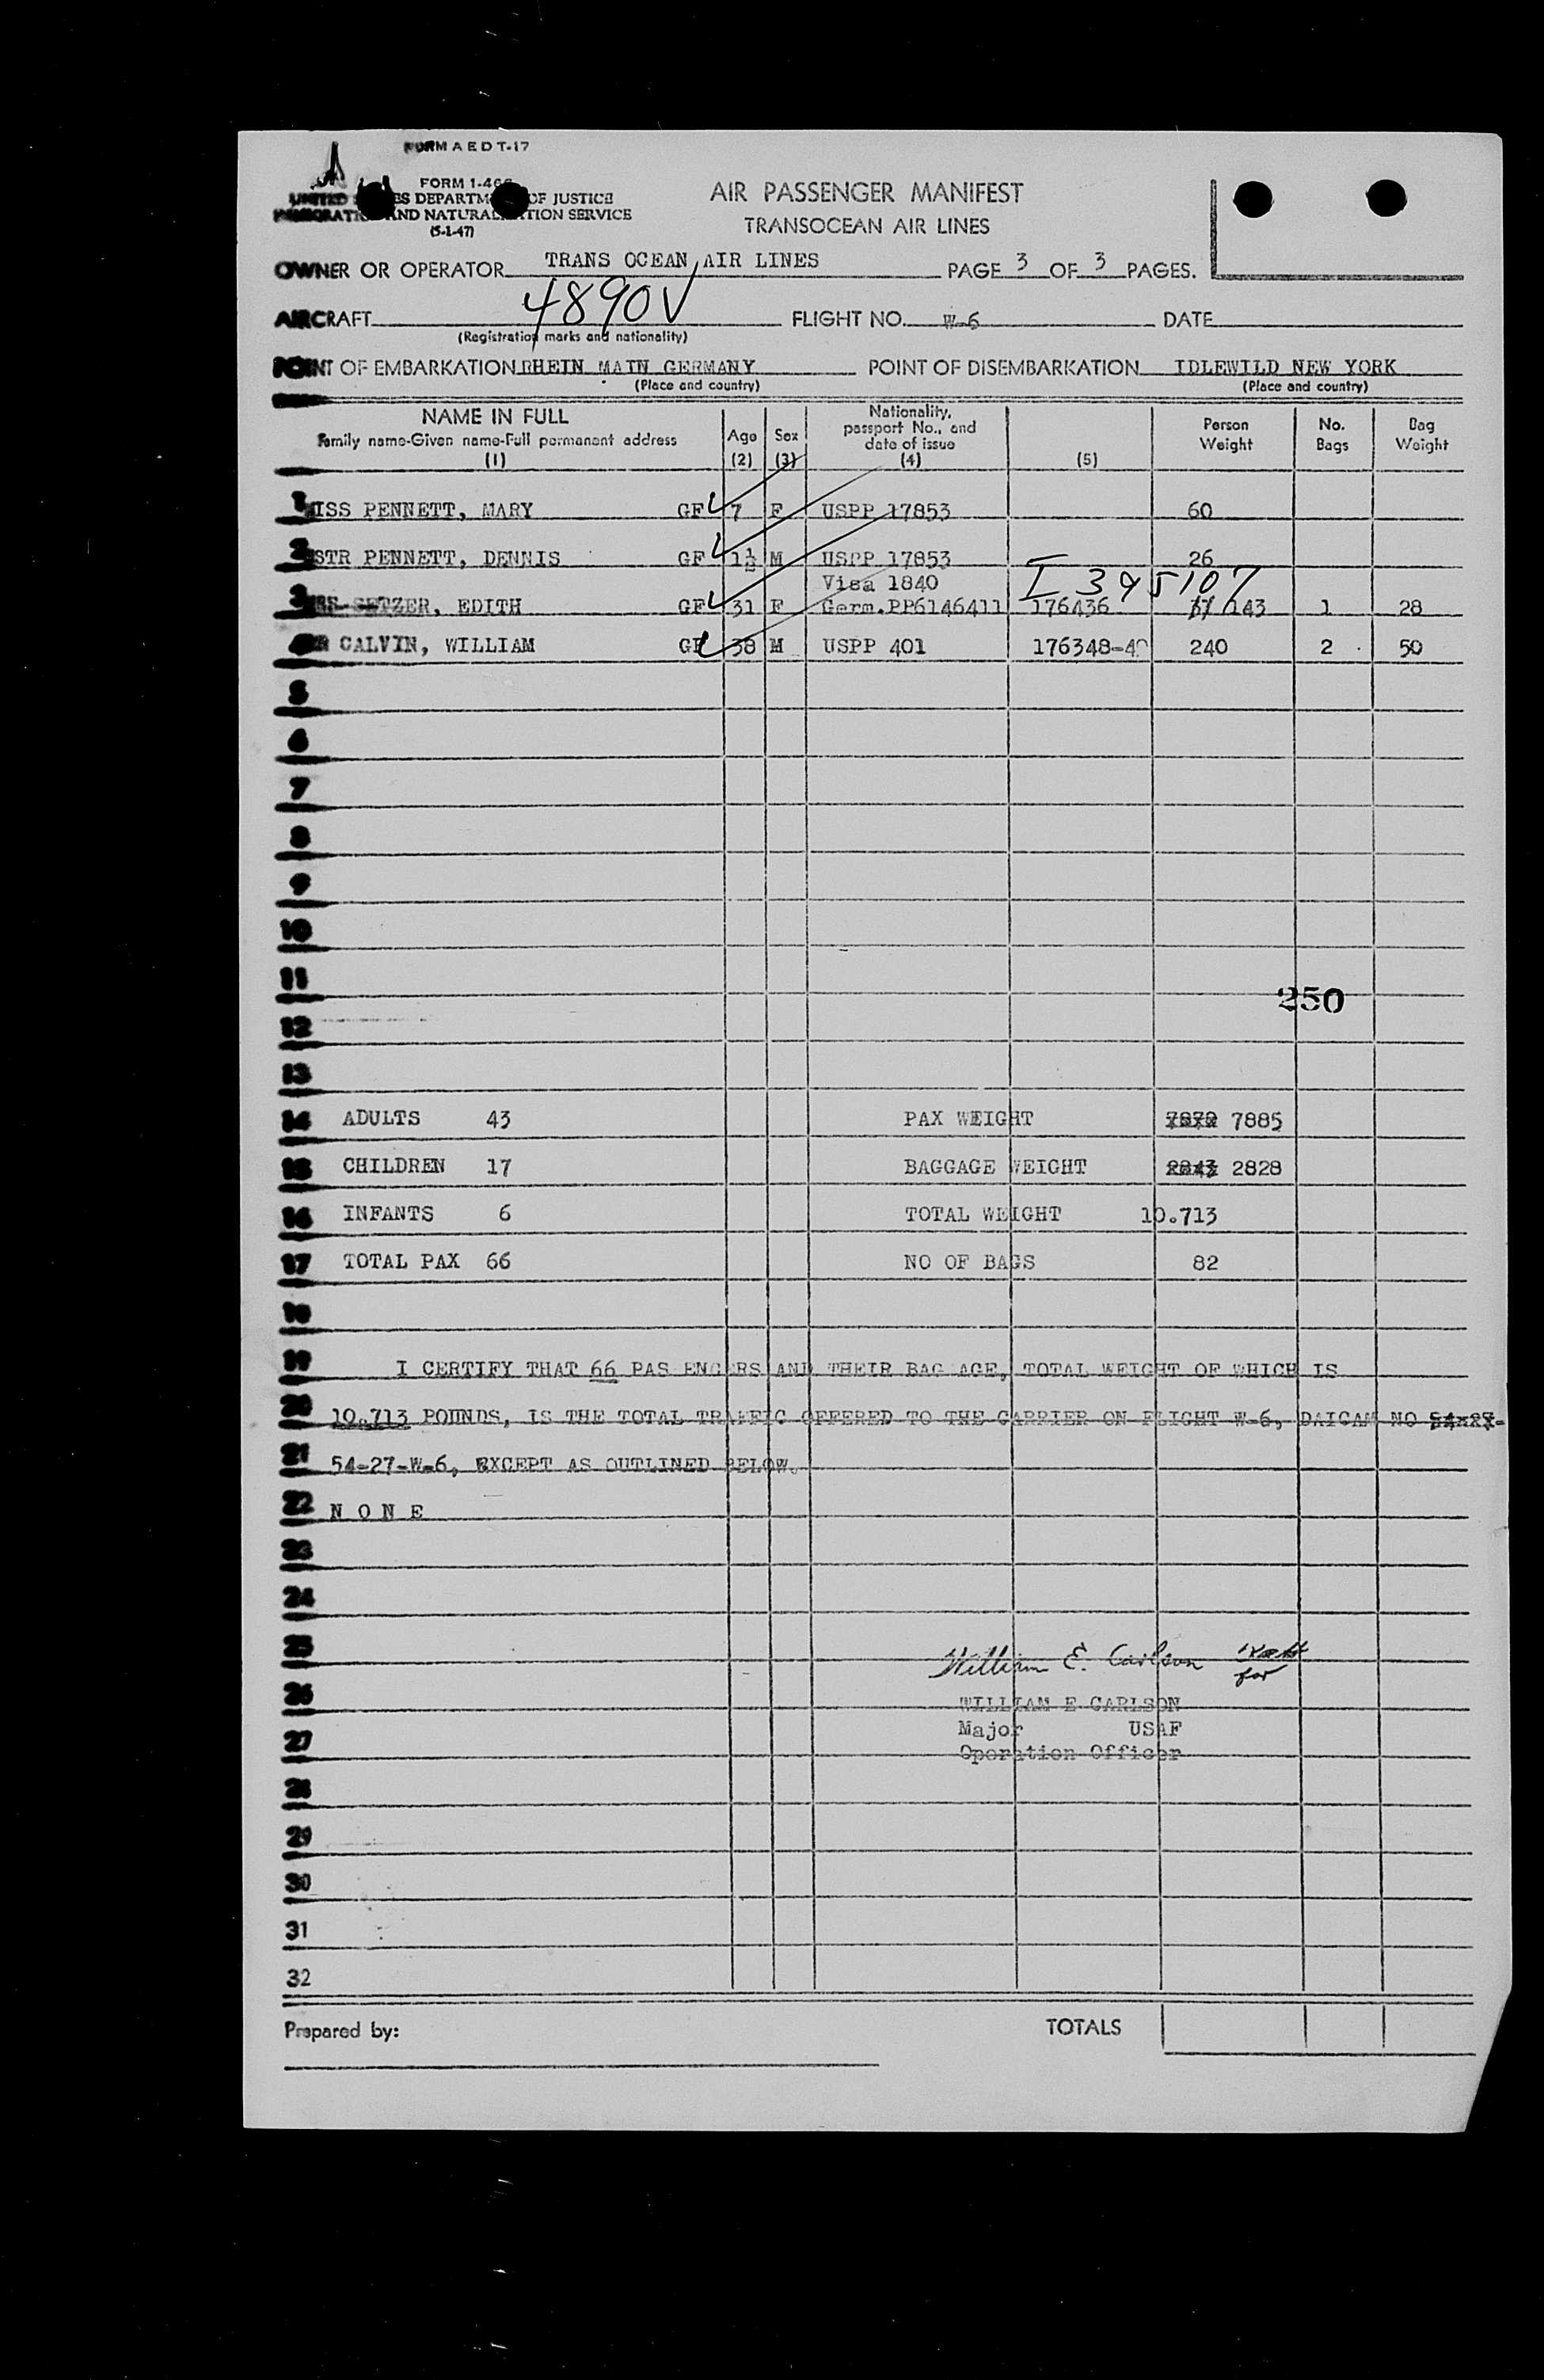 FORM A E D T-17
FORM I-466
UNITED STATES DEPARTMENT OF JUSTICE
IMMIGRATION AND NATURALIZATION SERVICE
(5-1-47)
AIR PASSENGER MANIFEST
TRANSOCEAN AIR LINES
OWNER OR OPERATOR TRANS OCEAN AIR LINES PAGE 3 OF 3 PAGES.
AIRCRAFT 4890V FLIGHT NO. W-6 DATE
(Registration marks and nationality)
POINT OF EMBARKATION RHEIN MAIN GERMANY POINT OF DISEMBARKATION IDLEWILD NEW YORK
(Place and country) (Place and country)
NAME IN FULL
Family name-Given name-Full permanent address
(1)
Age
(2)
Sex
(3)
Nationality,
passport No., and
date of issue
(4)
(5)
Person
Weight
No.
Bags
Bag
Weight
1 ISS PENNETT, MARY GF 7 F USPP 17853 60
2 STR PENNETT, DENNIS GF 1½ M USPP 17853 26
Visa 1840 I 395107
3 SETZER, EDITH GF 31 F Germ.PP6146411 176436 143 1 28
4 CALVIN, WILLIAM GF 38 M USPP 401 176348-49 240 2 50
5
6
7
8
9
10
11
250
12
13
14 ADULTS 43 PAX WEIGHT 7872 7885
15 CHILDREN 17 BAGGAGE WEIGHT 2843 2828
16 INFANTS 6 TOTAL WEIGHT 10.713
17 TOTAL PAX 66 NO OF BAGS 82
18
19 I CERTIFY THAT 66 PAS ENGERS AND THEIR BAG AGE, TOTAL WEIGHT OF WHICH IS
20 10.713 POUNDS, IS THE TOTAL TRAFFIC OFFERED TO THE CARRIER ON FLIGHT W-6, DAICAM NO 54-27-
21 54-27-W-6, EXCEPT AS OUTLINED BELOW.
22 N O N E
23
24
25 William E. Carlson for
26 WILLIAM E CARLSON
27 Major USAF
Operation Officer
28
29
30
31
32
Prepared by: TOTALS